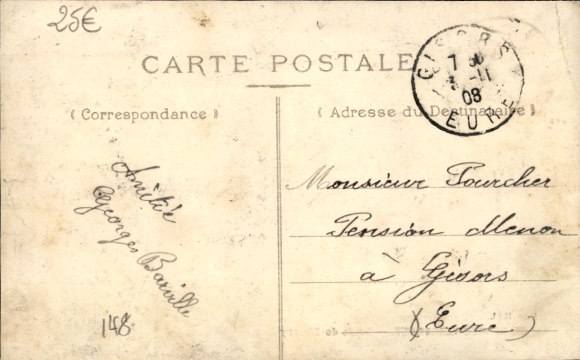 25€
CARTE POSTALE
(Correspondance)
(Adresse du Destinataire)
7 30
3 -11
08
EURE
Amitié
Georges
Monsieur Fourcher
Pension Menon
à Gisors
(Eure)
148